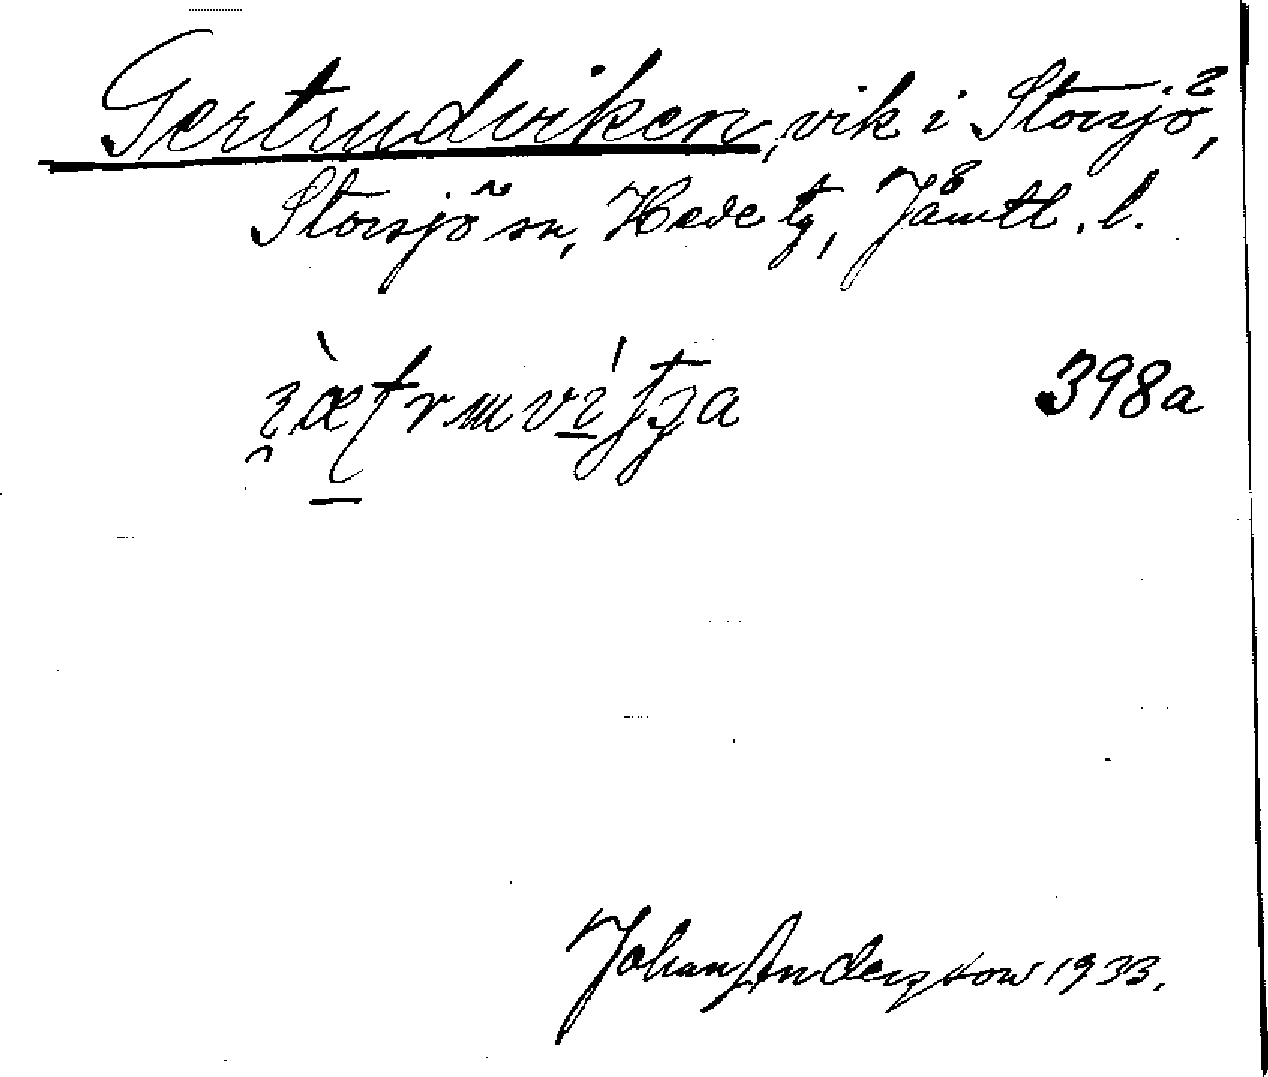 Gertrudviken, vik i Storsjö,
Storsjö sn, Hede tg, Jämtl. l.
398a
Johan Anderson 1933.